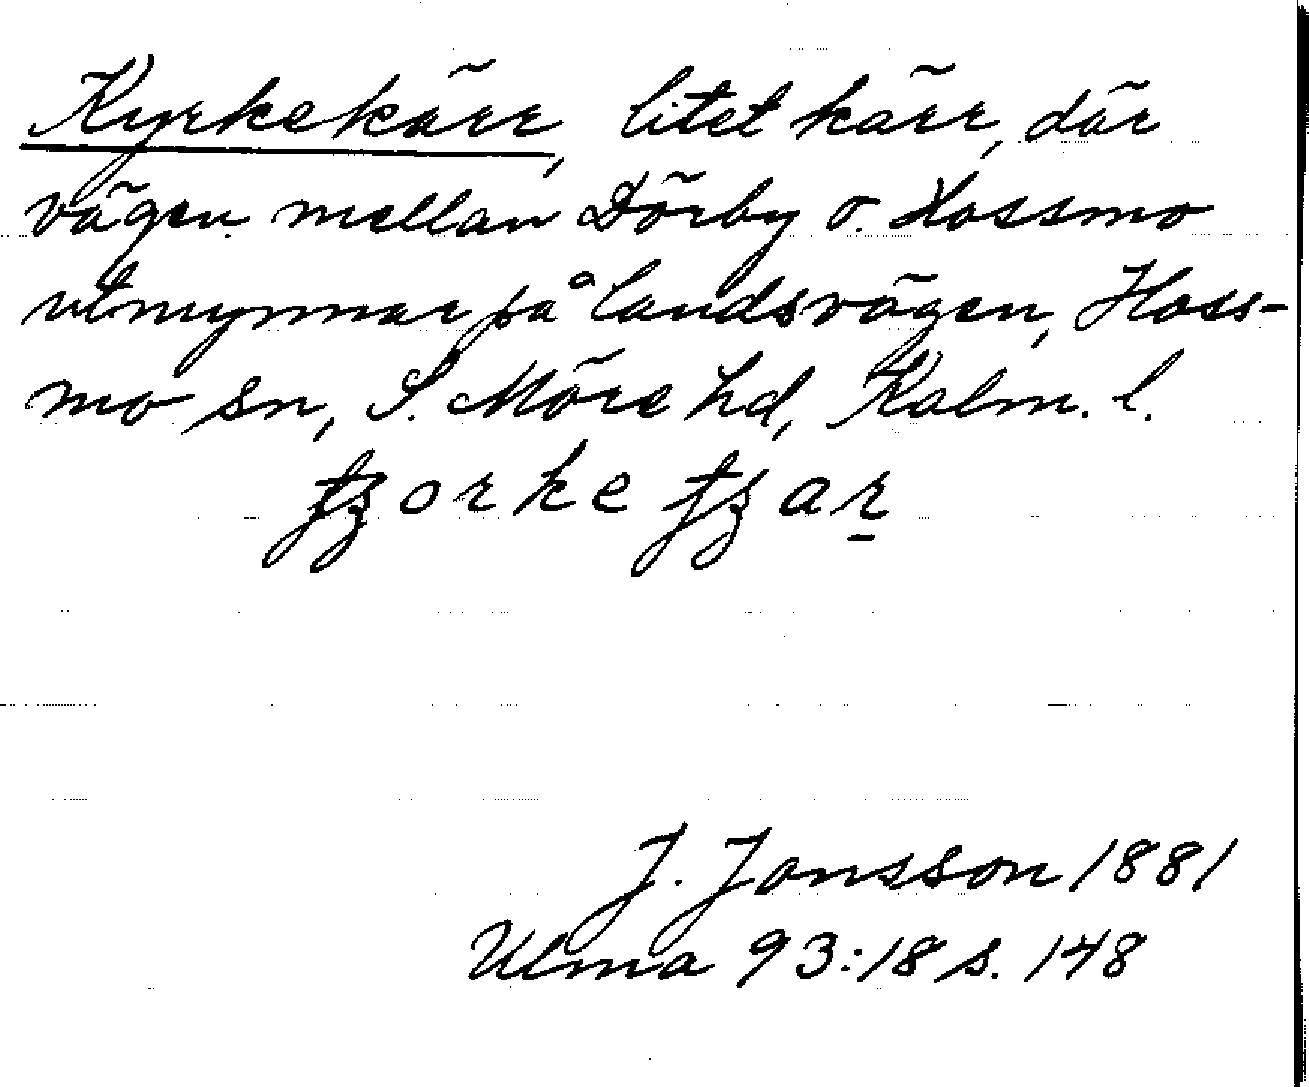 Kyrkekärr, litet kärr, där
vägen mellan Dörby o. Hossmo
utmynnar på landsvägen, Hoss-
mo sn, S. Möre hd, Kalm. l.
J. Jonsson 1881
Ulma 93:18 s. 148